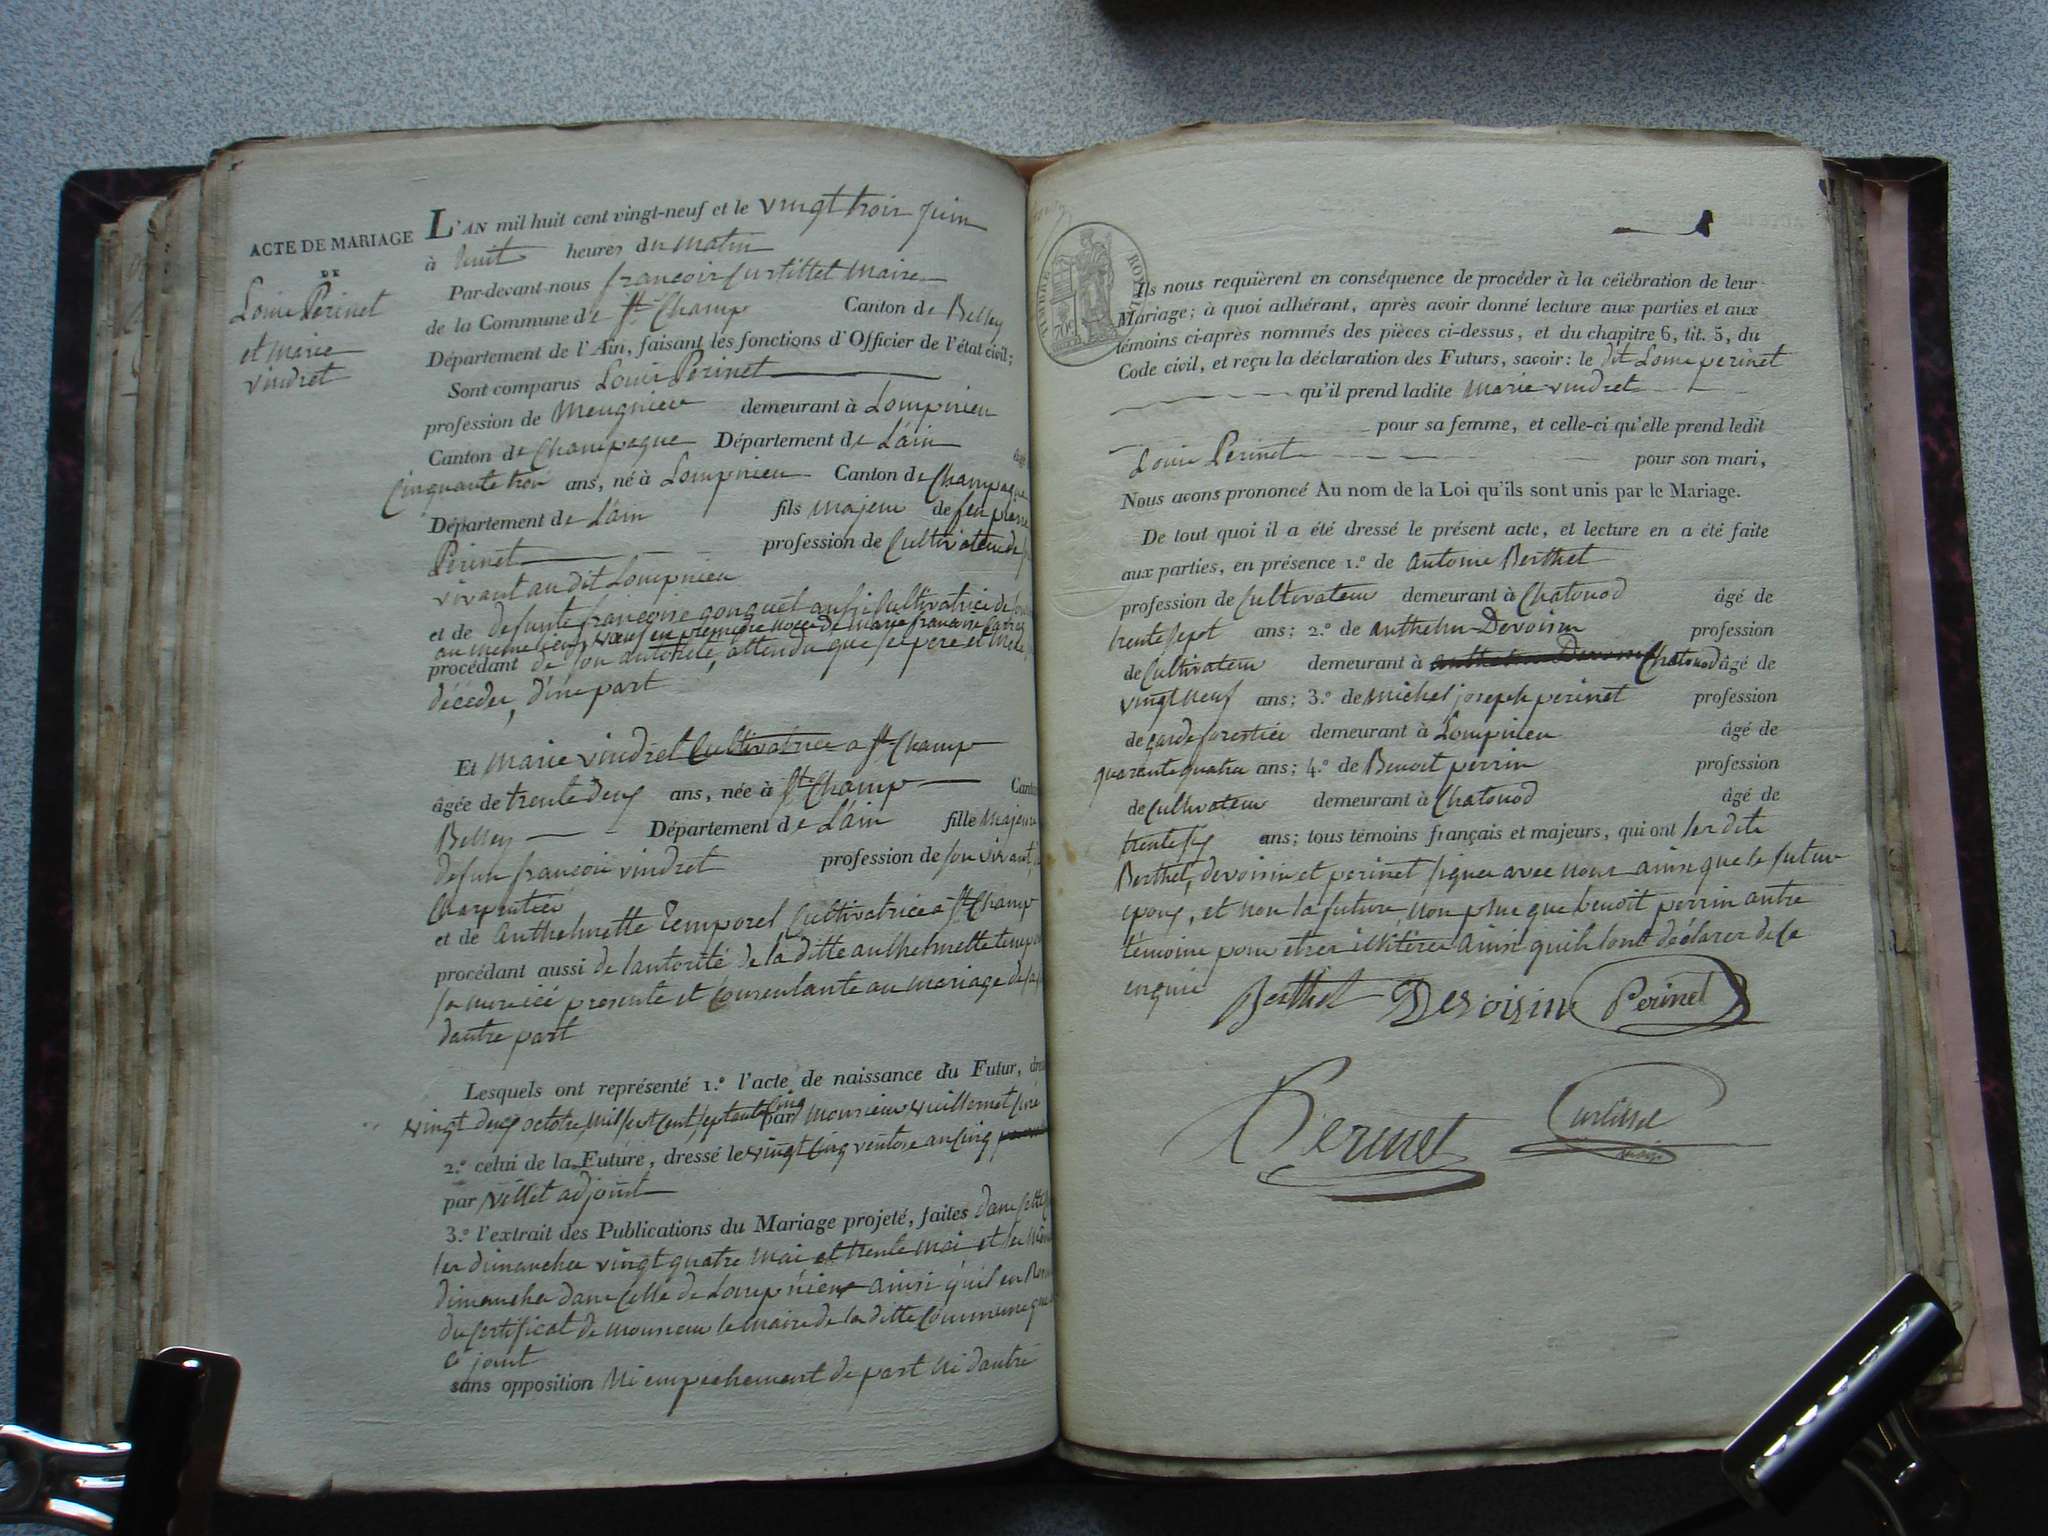 ACTE DE MARIAGE
DE
Louis Perinet
et marie
vindret
L'AN mil huit cent vingt-neuf et le vingt trois juin
à huit heures du matin
Par-devant nous françois Curtillet Maire
de la Commune de St Champ Canton de Belley
Département de l'Ain, faisant les fonctions d'Officier de l'état civil;
Sont comparus Louis Perinet
profession de Meugnieu demeurant à Lompnieu
Canton de Champagne Département de L'ain âgé
Cinquante trois ans, né à Lompnieu Canton de Champagne
Département de L'ain fils majeur de feu pierre
Perinet profession de Cultivateur de
vivant au dit Lompnieu
et de defunte françoise gouquet aussi Cultivatrice de
au meme lieu, veuf en premiere noce de marie francoise
procédant de son autorité, attendu que ses pere et mere
décédés, d'une part
Et marie vindret Cultivatrice a St Champ
âgée de trente deux ans, née à St Champ Canton
Belley Département de L'ain fille majeure
defun francois vindret profession de son vivant
Charpentier
et de anthelmette Temporel Cultivatrice a St Champ
procédant aussi de lautorité de la ditte anthelmette temporel
sa mere icé presente et Consentante au mariage de sa
dautre part
Lesquels ont représenté 1.º l'acte de naissance du Futur,
vingt deux octobre mil sept cent septante cinq par monsieur vuillermet curé
2.º celui de la Future, dressé le vingt cinq ventose an cinq
par villet adjoint
3.º l'extrait des Publications du Mariage projeté, faites dans cette
les dimanches vingt quatre mai et trente mai et les memes
dimanches dans Celle de Lompnieu ainsi quil en
du certificat de monsieur le maire de la ditte Commune
ci joint
sans opposition ni empechement de part ni dautre
TIMBRE ROYAL
70c
Ils nous requièrent en conséquence de procéder à la célébration de leur
Mariage; à quoi adhérant, après avoir donné lecture aux parties et aux
témoins ci-après nommés des pièces ci-dessus, et du chapitre 6, tit. 5, du
Code civil, et reçu la déclaration des Futurs, savoir: le dit Louis perinet
qu'il prend ladite marie vindret
pour sa femme, et celle-ci qu'elle prend ledit
Louis Perinet pour son mari,
Nous avons prononcé Au nom de la Loi qu'ils sont unis par le Mariage.
De tout quoi il a été dressé le présent acte, et lecture en a été faite
aux parties, en présence 1.º de antoine Berthet
profession de Cultivateur demeurant à Chatonod âgé de
trente sept ans; 2.º de anthelme Devoisin profession
de Cultivateur demeurant à Chatonod âgé de
vingt neuf ans; 3.º de michel joseph perinet profession
de garde forestier demeurant à Lompnieu âgé de
quarante quatre ans; 4.º de Benoit perrin profession
de Cultivateur demeurant à Chatonod âgé de
trente six ans; tous témoins français et majeurs, qui ont les dits
Berthet, devoisin et perinet signer avec nous ainsi que le futur
epoux, et non la future, non plus que benoit perrin autre
témoins pour etres illitérés ainsi quils lont déclarer de ce
enquis
Berthet Devoisin Perinet
Perinet Curtillet
maire